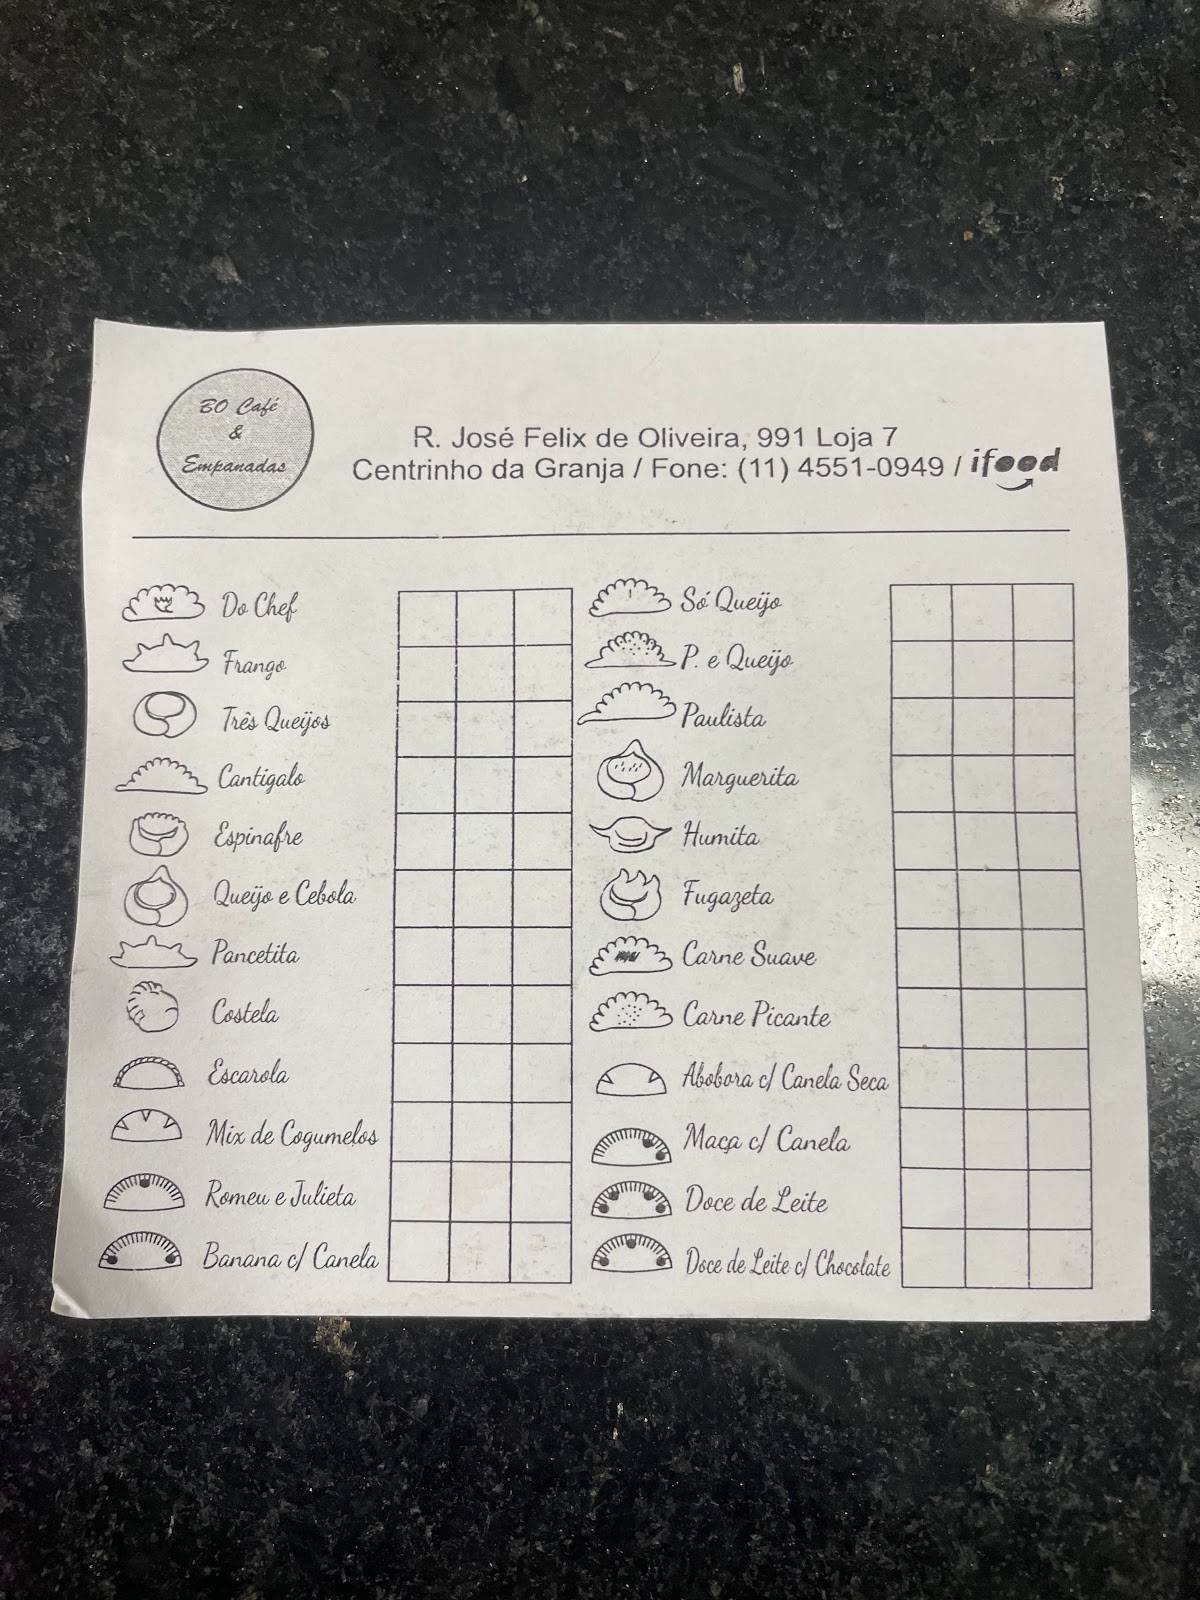 BO Café
&
Empanadas
R. José Felix de Oliveira, 991 Loja 7
Centrinho da Granja / Fone: (11) 4551-0949 / ifood
Do Chef
Frango
Três Queijos
Cantigalo
Espinafre
Queijo e Cebola
Pancetita
Costela
Escarola
Mix de Cogumelos
Romeu e Julieta
Banana c/ Canela
Só Queijo
P. e Queijo
Paulista
Marguerita
Humita
Fugazeta
Carne Suave
Carne Picante
Abobora c/ Canela Seca
Maça c/ Canela
Doce de Leite
Doce de Leite c/ Chocolate